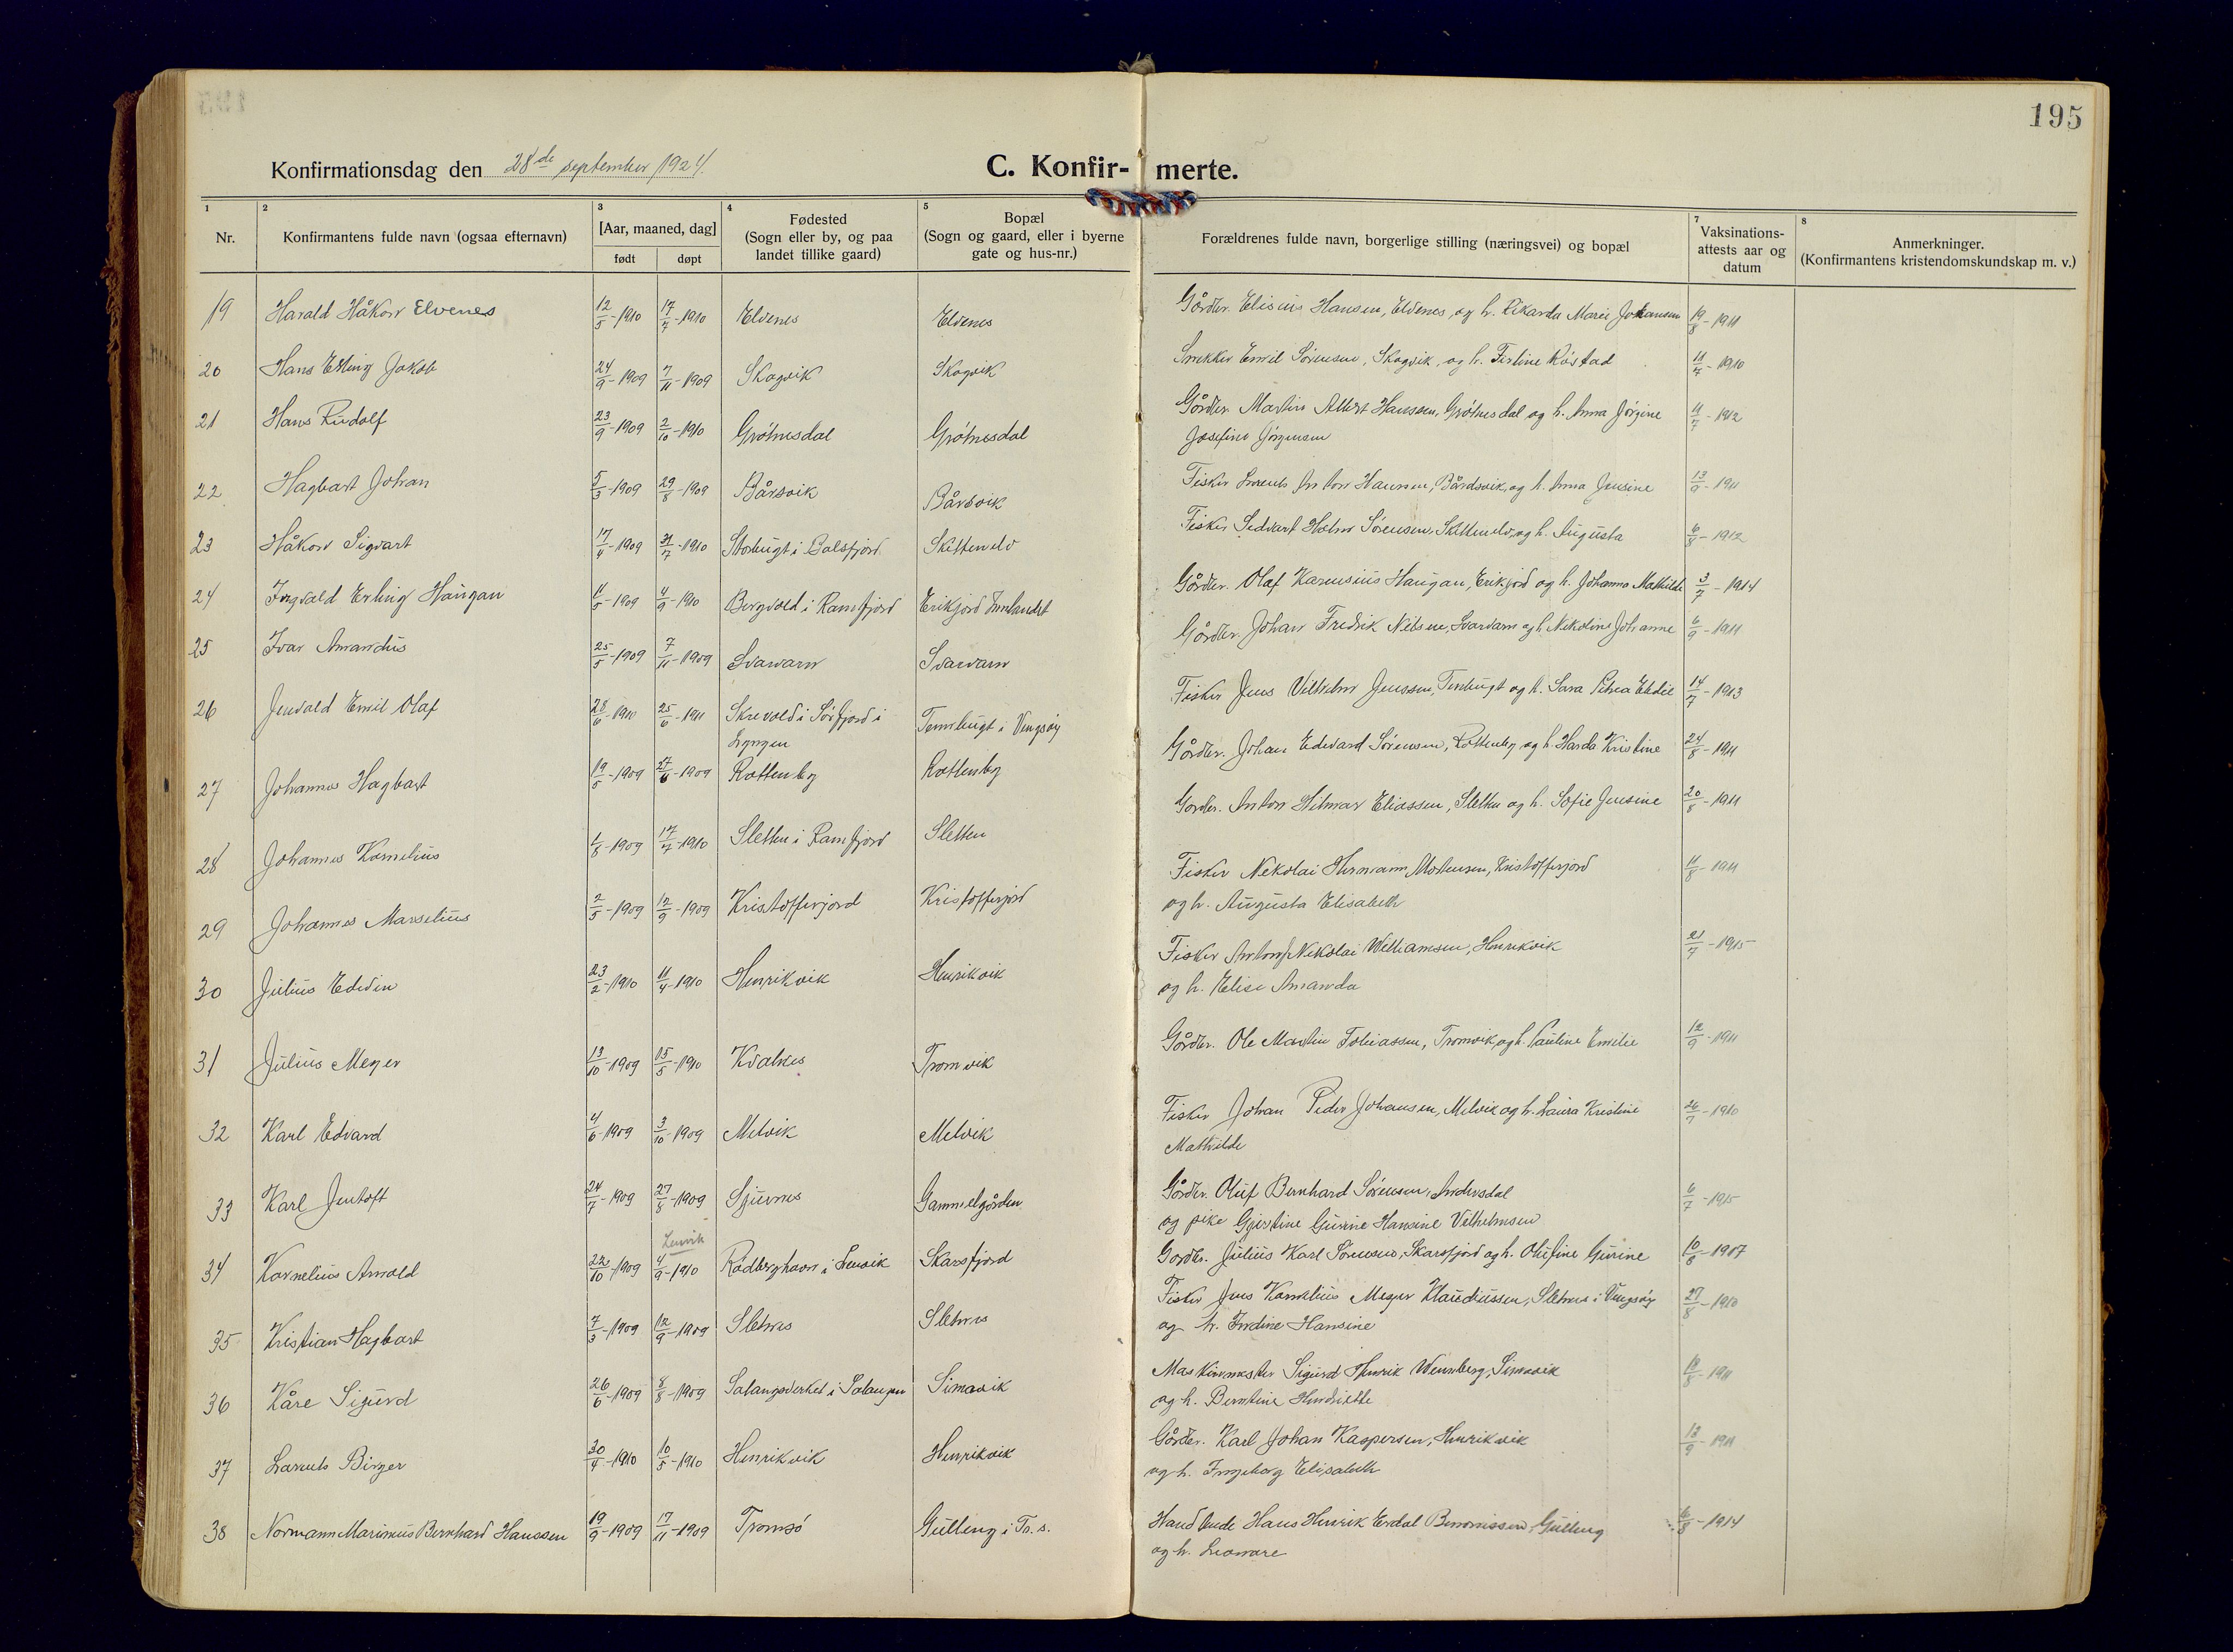 195
Konfirmationsdag den 28de september 1924.
C. Konfir- merte.
1 Nr.
2 Konfirmantens fulde navn (ogsaa efternavn)
3 [Aar, maaned, dag]
født døpt
4 Fødested
(Sogn eller by, og paa
landet tillike gaard)
5 Bopæl
(Sogn og gaard, eller i byerne
gate og hus-nr.)
Forældrenes fulde navn, borgerlige stilling (næringsvei) og bopæl
7 Vaksinations-
attests aar og
datum
8 Anmerkninger.
(Konfirmantens kristendomskundskap m. v.)
19 Harald Håkon Elvenes 12/5-1910 17/7-1910 Elvenes Elvenes Gårdbr. Elisius Hansen, Elvenes, og h. Rikarda Marie Johansen 19/8-1911
20 Hans Erling Jakob 24/9-1909 7/11-1909 Skogvik Skogvik Snekker Emil Sörensen, Skogvik, og h. Röstad 11/7-1910
21 Hans Rudolf 23/9-1909 2/10-1910 Grötnesdal Grötnesdal Gårdbr. Martin Albert Hanssen, Grötnesdal og h. Anna Jörgine 11/7-1912
Josefine Jörgensen
22 Hagbart Johan 5/3-1909 29/8-1909 Bårdsvik Bårdsvik Fisker Lorents Anton Hansen, Bårdsvik, og h. Anna Jensine 13/9-1911
23 Håkon Sigvart 17/4-1909 31/7-1910 Storbugt i Balsfjord Skittenelv Fisker Sedvart Holm Sörensen, Skittenelv, og h. Augusta 6/8-1912
24 Ingvald Erling Haugan 11/5-1909 4/9-1910 Bergvold i Ramfjord Erikjord Gårdbr. Olaf Karenius Haugan, Erikjord og h. Johanna Mathilde 3/7-1914
25 Ivar Amandus 25/5-1909 7/11-1909 Svarvarn Svarvarn Gårdbr. Johan Fredrik Nilsen, Svarvarn og h. Nekoline Johanne 6/9-1911
26 Jenvald Emil Olaf 28/6-1910 25/6-1911 Skrevold i Sörfjord i Tennbugt i Vengsöy Fisker Jens Vilhelm Jenssen, Tennbugt og h. Sara Petrea 14/7-1913
Lyngen
27 Johannes Hagbart 19/5-1909 27/6-1909 Rottenby Rottenby Gårdbr. Johan Edvard Sörensen, Rottenby og h. Harda Kristine 24/8-1911
28 Johannes Kornelius 1/8-1909 17/7-1910 Sletten i Ramfjord Sletten Gårdbr. Anton Hilmar Eliassen, Sletten og h. Sofie Jensine 20/8-1911
29 Johannes Marselius 2/5-1909 12/9-1909 Kristofferjord Kristofferjord Fisker Nekolai Hermann Mortensen, Kristofferjord 11/8-1911
og h. Augusta Elisabeth
30 Julius Edvin 23/2-1910 11/4-1910 Henrikvik Henrikvik Fisker Anton Nekolai Williamsen, Henrikvik 21/7-1915
og h. Elise Amanda
31 Julius Meyer 13/10-1909 15/5-1910 Kvalnes Tromvik Gårdbr. Ole Martin Tobiassen, Tromvik, og h. Pauline Emilie 12/9-1911
32 Karl Edvard 4/6-1909 3/10-1909 Melvik Melvik Fisker Johan Peder Johansen, Melvik og h. Laura Kristine 26/7-1910
Mathilde
33 Karl Jentoft 24/7-1909 27/8-1909 Sjursnes Gammelgården Gårdbr. Oluf Bernhard Sörensen, Andersdal 6/7-1915
og pike Gjertine Gurine Hansine Vilhelmsen
Lenvik
34 Kornelius Arnold 22/10-1909 4/9-1910 Rödberghavn i Lenvik Skarsfjord Gårdbr. Julius Karl Sörensen, Skarsfjord og h. Olufine Gurine 10/8-1917
35 Kristian Hagbart 7/3-1909 12/9-1909 Sletnes Sletnes Fisker Jens Kornelius Meyer Klaudiussen, Sletnes i Vengsöy 27/8-1910
og h. Indine Hansine
36 Kåre Sigurd 26/6-1909 8/8-1909 Salangsverket i Salangen Simavik Maskinmester Sigurd Henrik Wennberg, Simavik 18/8-1911
og h. Berntine Hendriette
37 Laurents Birger 30/4-1910 10/5-1910 Henrikvik Henrikvik Gårdbr. Karl Johan Kaspersen, Henrikvik 13/9-1911
og h. Ingeborg Elisabeth
38 Normann Marinius Bernhard Hanssen 19/9-1909 17/11-1909 Tromsö Gulleng i Tr. s. Handlende Hans Henrik Erdal Gulleng 6/8-1914
og h. Leonore